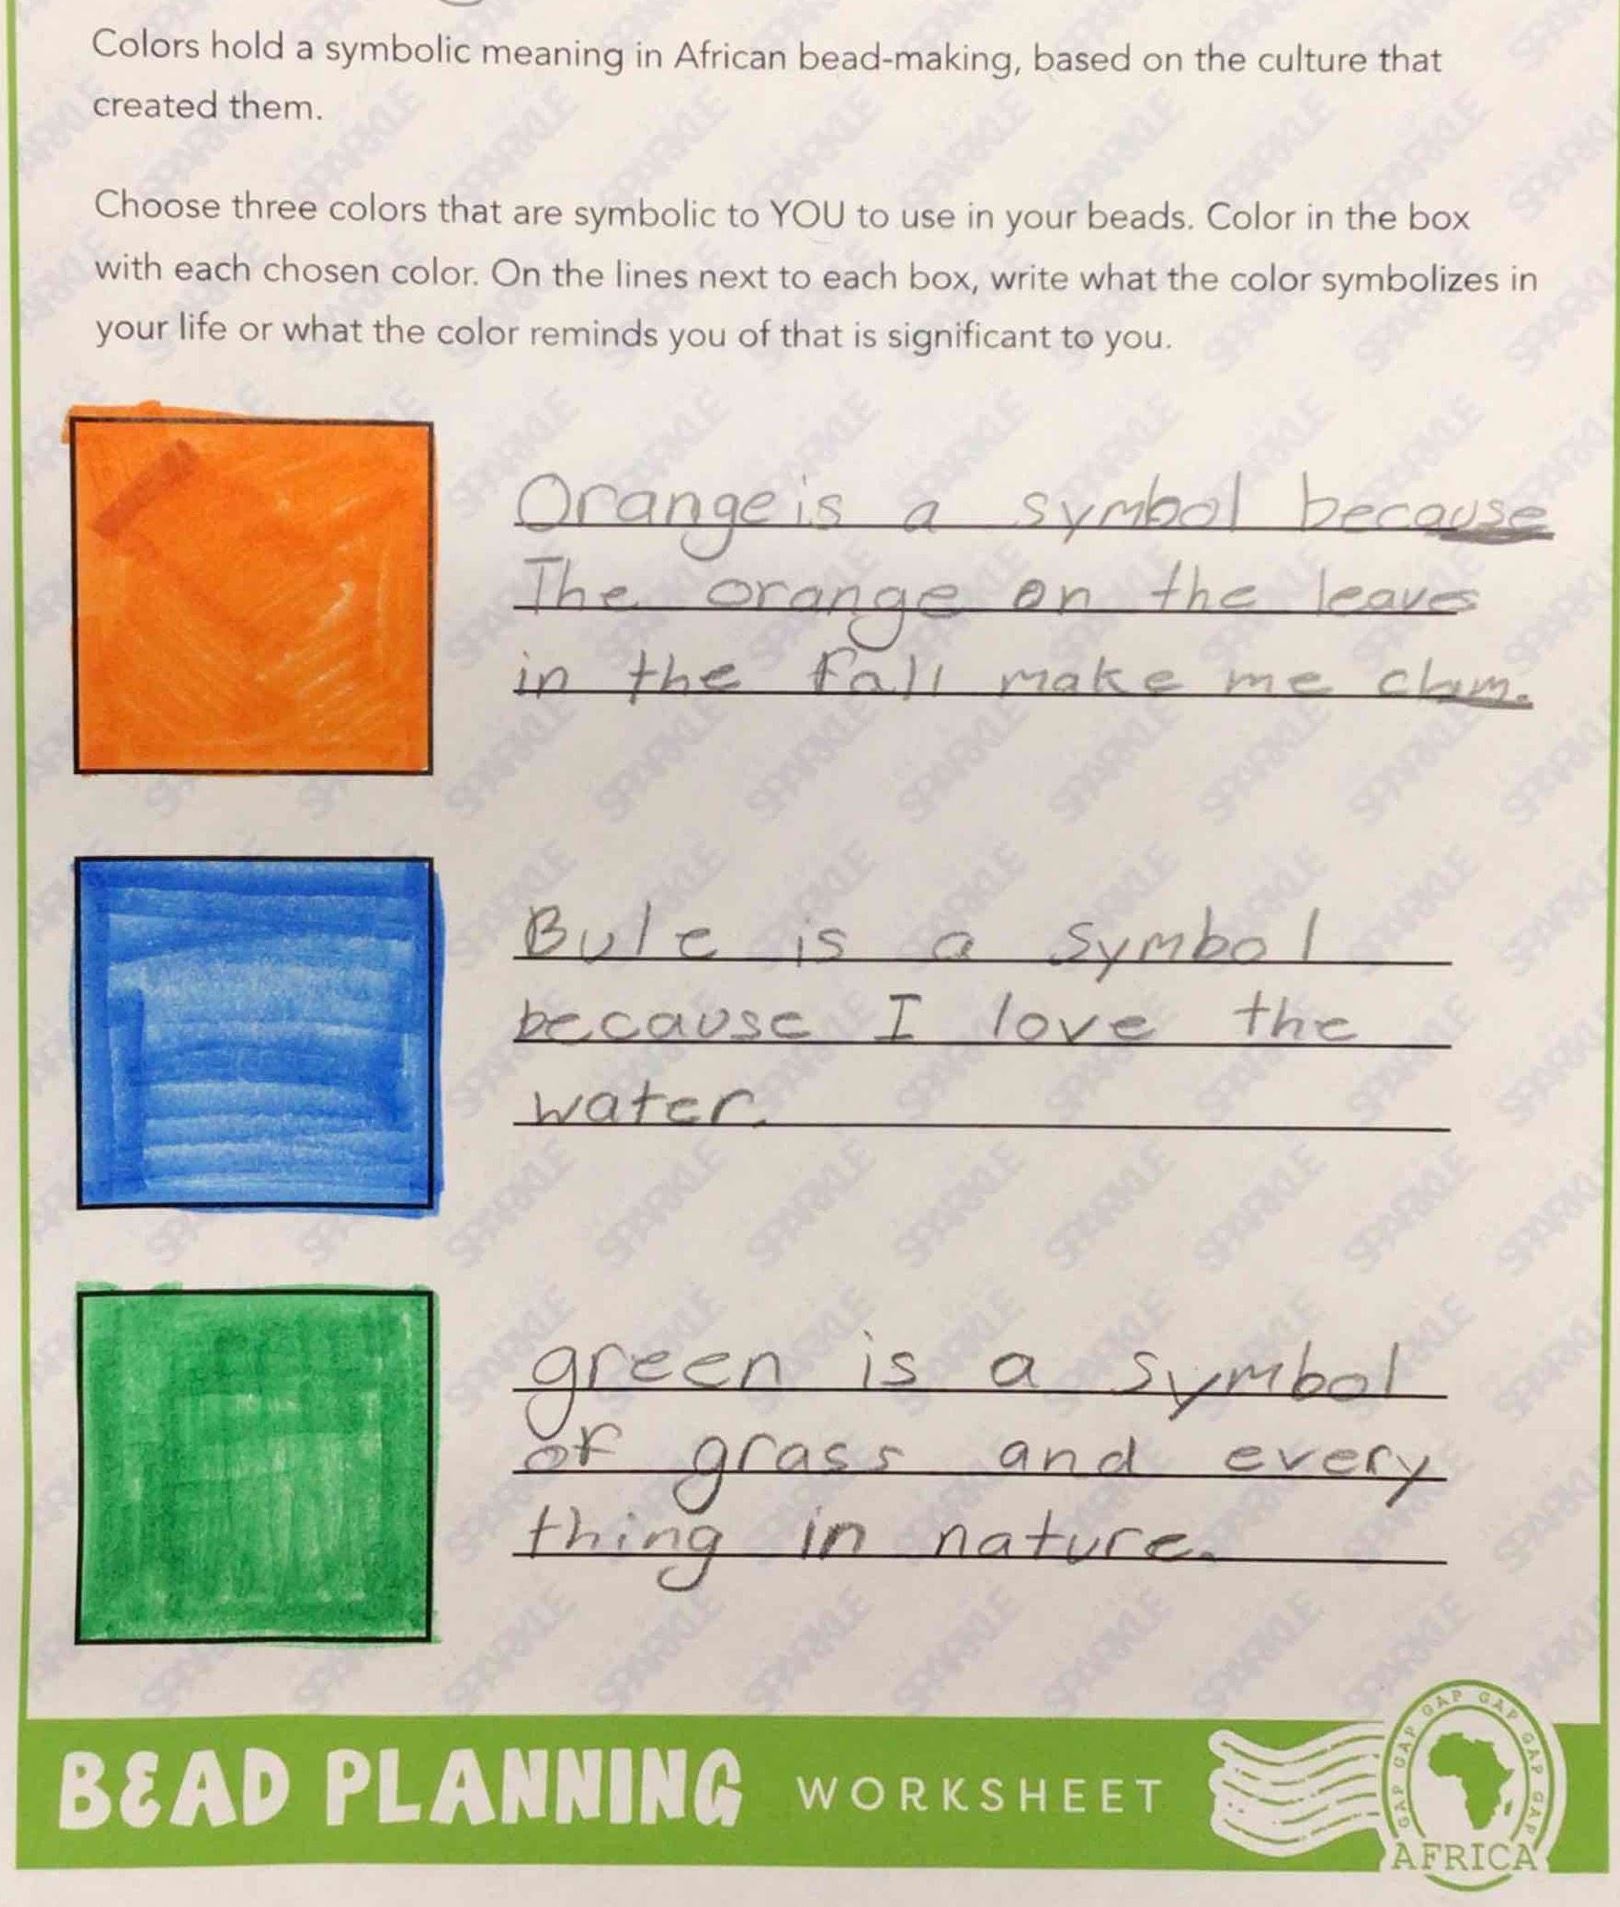 Colors hold a symbolic meaning in African bead-making, based on the culture that
created them.
Choose three colors that are symbolic to YOU to use in your beads. Color in the box
with each chosen color. On the lines next to each box, write what the color symbolizes in
your life or what the color reminds you of that is significant to you.
Orange is a symbol because
The orange on the leaves
in the fall make me clam.
Bule is a symbol
because I love the
water.
green is a symbol
of grass and every
thing in nature.
BEAD PLANNING WORKSHEET
GAP GAP GAP GAP GAP GAP
AFRICA